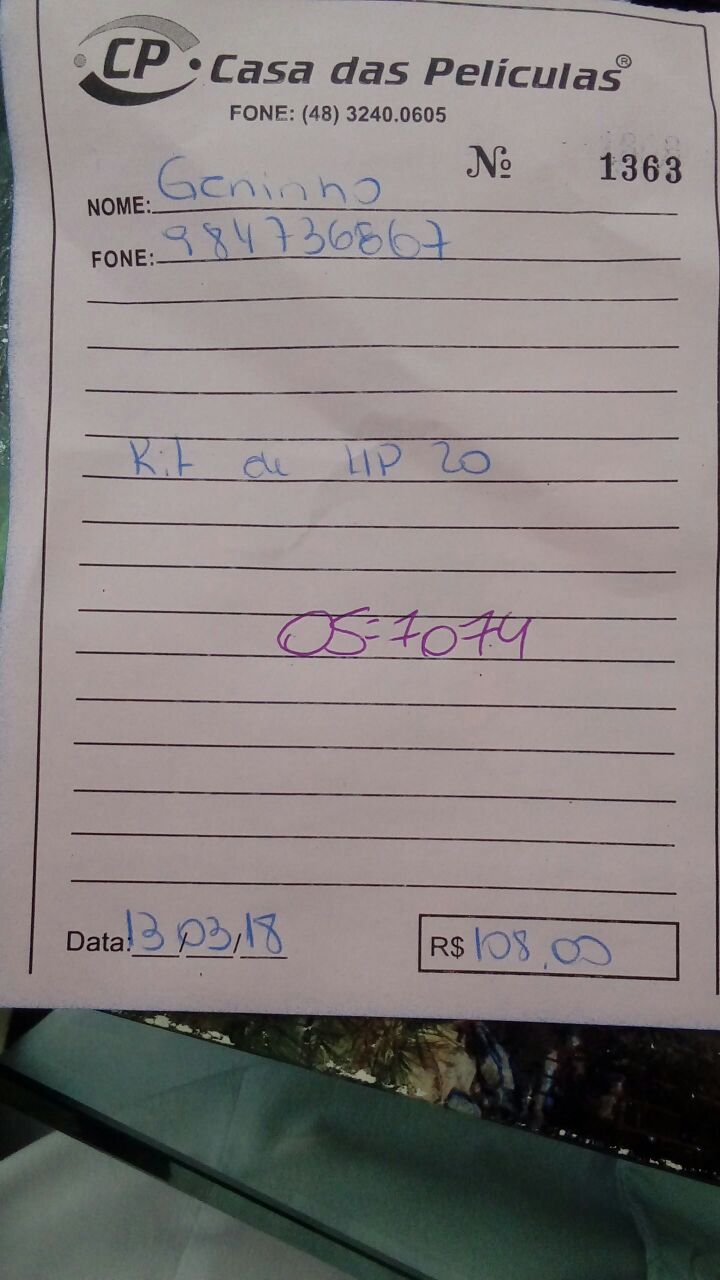 CP • Casa das Películas®
FONE: (48) 3240.0605
Nº 1363
NOME: Geninho
FONE: 984736867
Kit de HP 20
OS=7074
Data: 13/03/18 R$ 108,00